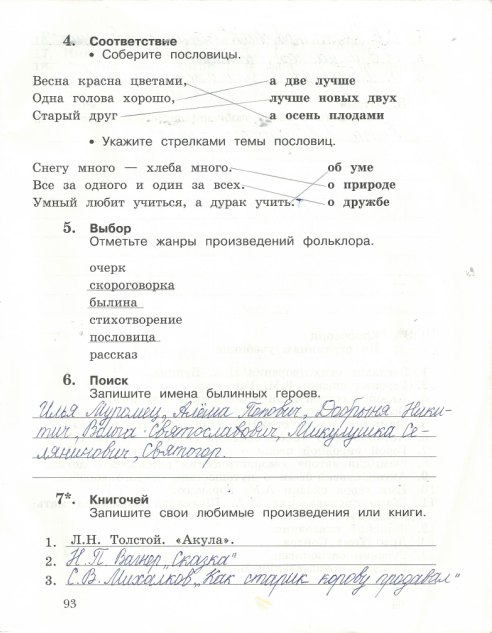 4. Соответствие
• Соберите пословицы.
Весна красна цветами, а две лучше
Одна голова хорошо, лучше новых двух
Старый друг а осень плодами
• Укажите стрелками темы пословиц.
Снегу много — хлеба много. об уме
Все за одного и один за всех. о природе
Умный любит учиться, а дурак учить. о дружбе
5. Выбор
Отметьте жанры произведений фольклора.
очерк
скороговорка
былина
стихотворение
пословица
рассказ
6. Поиск
Запишите имена былинных героев.
Илья Муромец, Алёша Попович, Добрыня Ники-
тич, Вольга Святославович, Микулушка Се-
лянинович, Святогор.
7*. Книгочей
Запишите свои любимые произведения или книги.
1. Л.Н. Толстой. «Акула».
2. Н.П. Вагнер „Сказка“
3. С.В. Михалков „Как старик корову продавал“
93